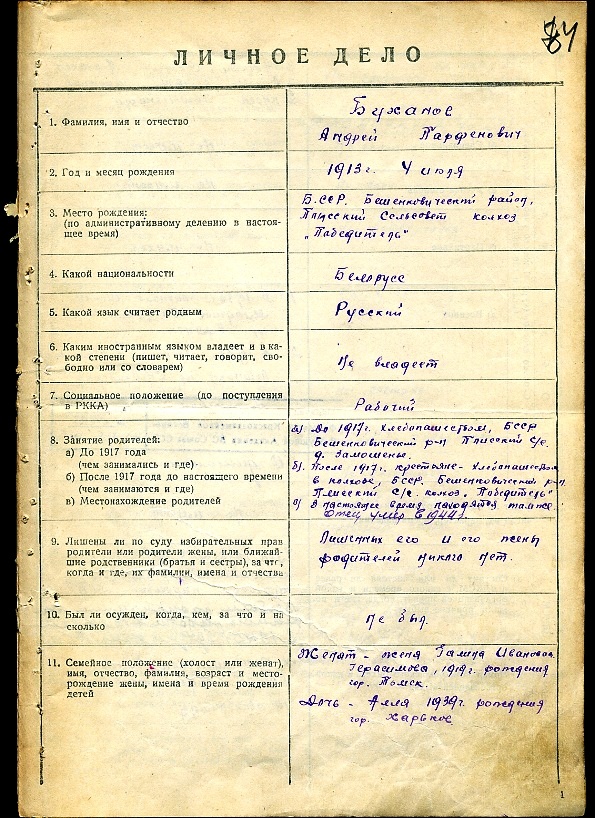 84
ЛИЧНОЕ ДЕЛО
1. Фамилия, имя и отчество
Буханов
Андрей Парфенович
2. Год и месяц рождения
1913 г. 4 июля
3. Место рождения:
(по административному делению в настоя-
щее время)
Б.ССР. Бешенковический район,
Плисский Сельсовет колхоз
„Победитель"
4. Какой национальности
Белорусс
5. Какой язык считает родным
Русский
6. Каким иностранным языком владеет и в ка-
кой степени (пишет, читает, говорит, сво-
бодно или со словарем)
Не владеет
7. Социальное положение (до поступления
в РККА)
Рабочий
8. Занятие родителей:
а) До 1917 года
(чем занимались и где)
б) После 1917 до настоящего времени
(чем занимаются и где)
в) Местонахождение родителей
а) До 1917г. хлебопашеством, БССР
Бешенковический р-н Плисский С/с.
д. Замошенье.
б). После 1917г. крестьяне - хлебопашеством
в колхозе, БССР. Бешенковический р-н
Плисский С/с. колхоз „Победитель"
в) В настоящее время находятся там же
Отец умер в 1944 г.
9. Лишены ли по суду избирательных прав
родители или родители жены, или ближай-
шие родственники (братья и сестры), за что,
когда и где, их фамилии, имена и отчества
Лишенных его и его жены
родителей никого нет.
10. Был ли осужден, когда, кем, за что и на
сколько
Не был.
11. Семейное положение (холост или женат),
имя, отчество, фамилия, возраст и место-
рождение жены, имена и время рождения
детей
Женат - жена Галина Ивановна
Герасимова, 1919г. рождения
гор. Томск.
Дочь - Алла 1939г. рождения
гор. Харьков
1